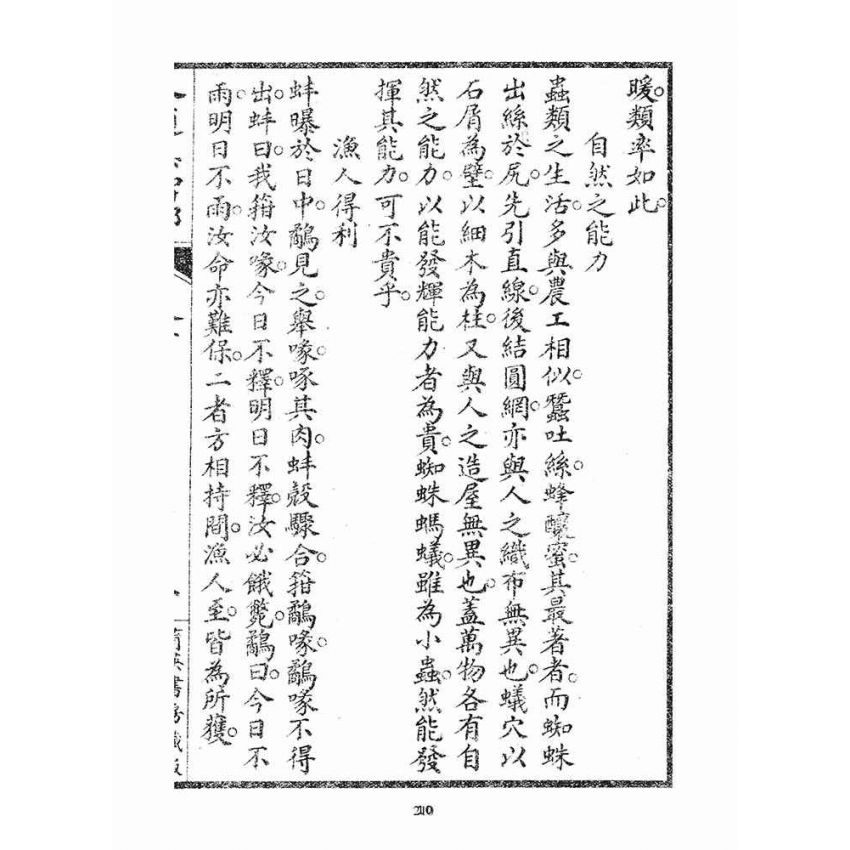 暖。類率如此。
自然之能力
蟲類之生活。多與農工相似。蠶吐絲。蜂釀蜜。其最著者。而蜘蛛
出絲於尻。先引直線。後結圓網。亦與人之織布無異也。蟻穴以
石屑為壁。以細木為柱。又與人之造屋無異也。蓋萬物各有自
然之能力。以能發輝能力者為貴。蜘蛛螞蟻。雖為小蟲。然能發
揮其能力。可不貴乎。
漁人得利
蚌曝於日中。鷸見之。舉喙。啄其肉。蚌殼驟合。箝鷸喙。鷸喙不得
出。蚌曰。我箝汝喙。今日不釋。明日不釋。汝必餓斃。鷸曰。今日不
雨。明日不雨。汝命亦難保。二者方相持間。漁人至。皆為所獲。
簡英書房藏板
210